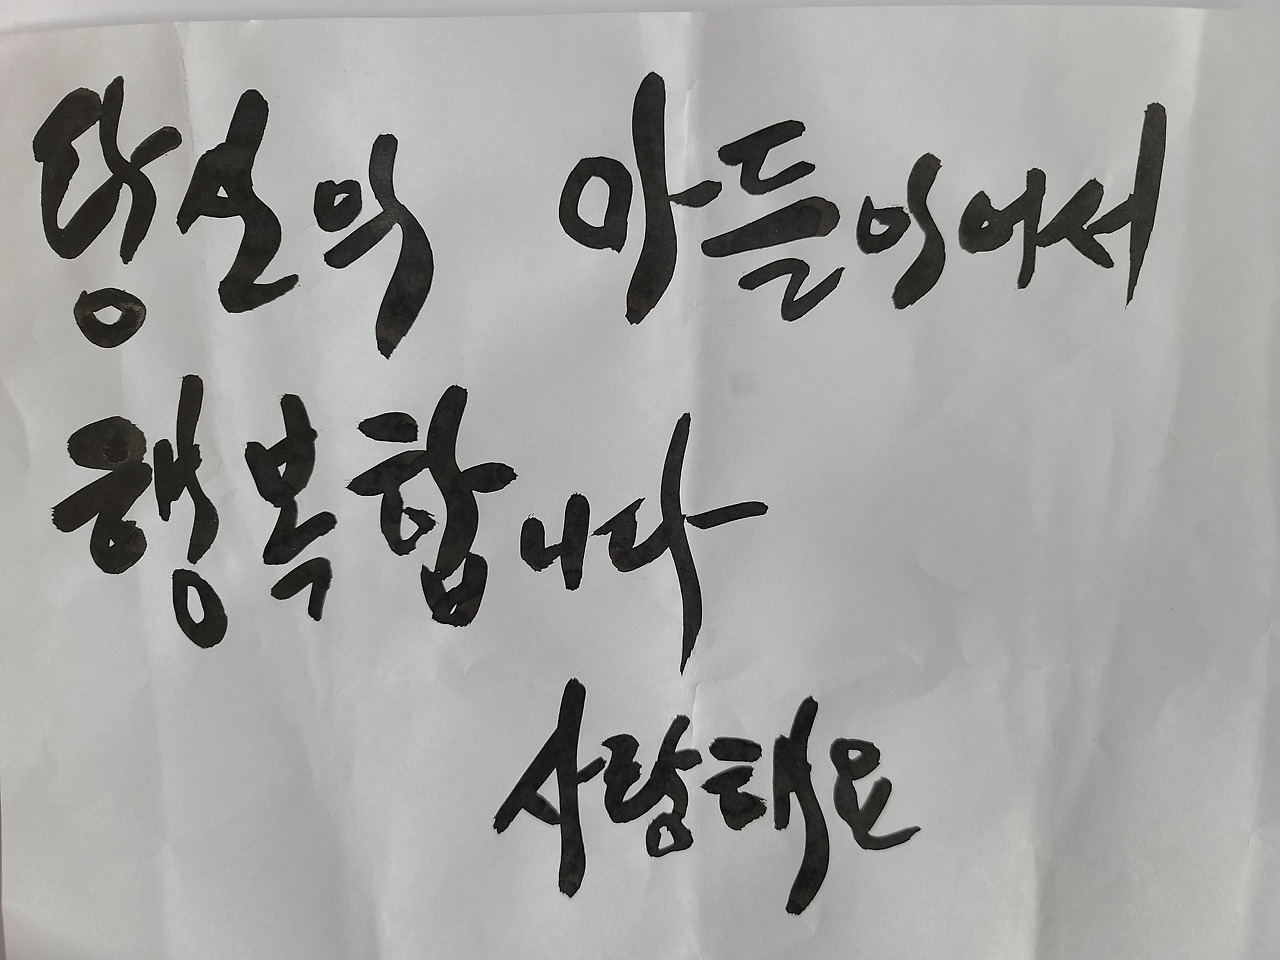 당신의 아들이어서
행복합니다
사랑해요